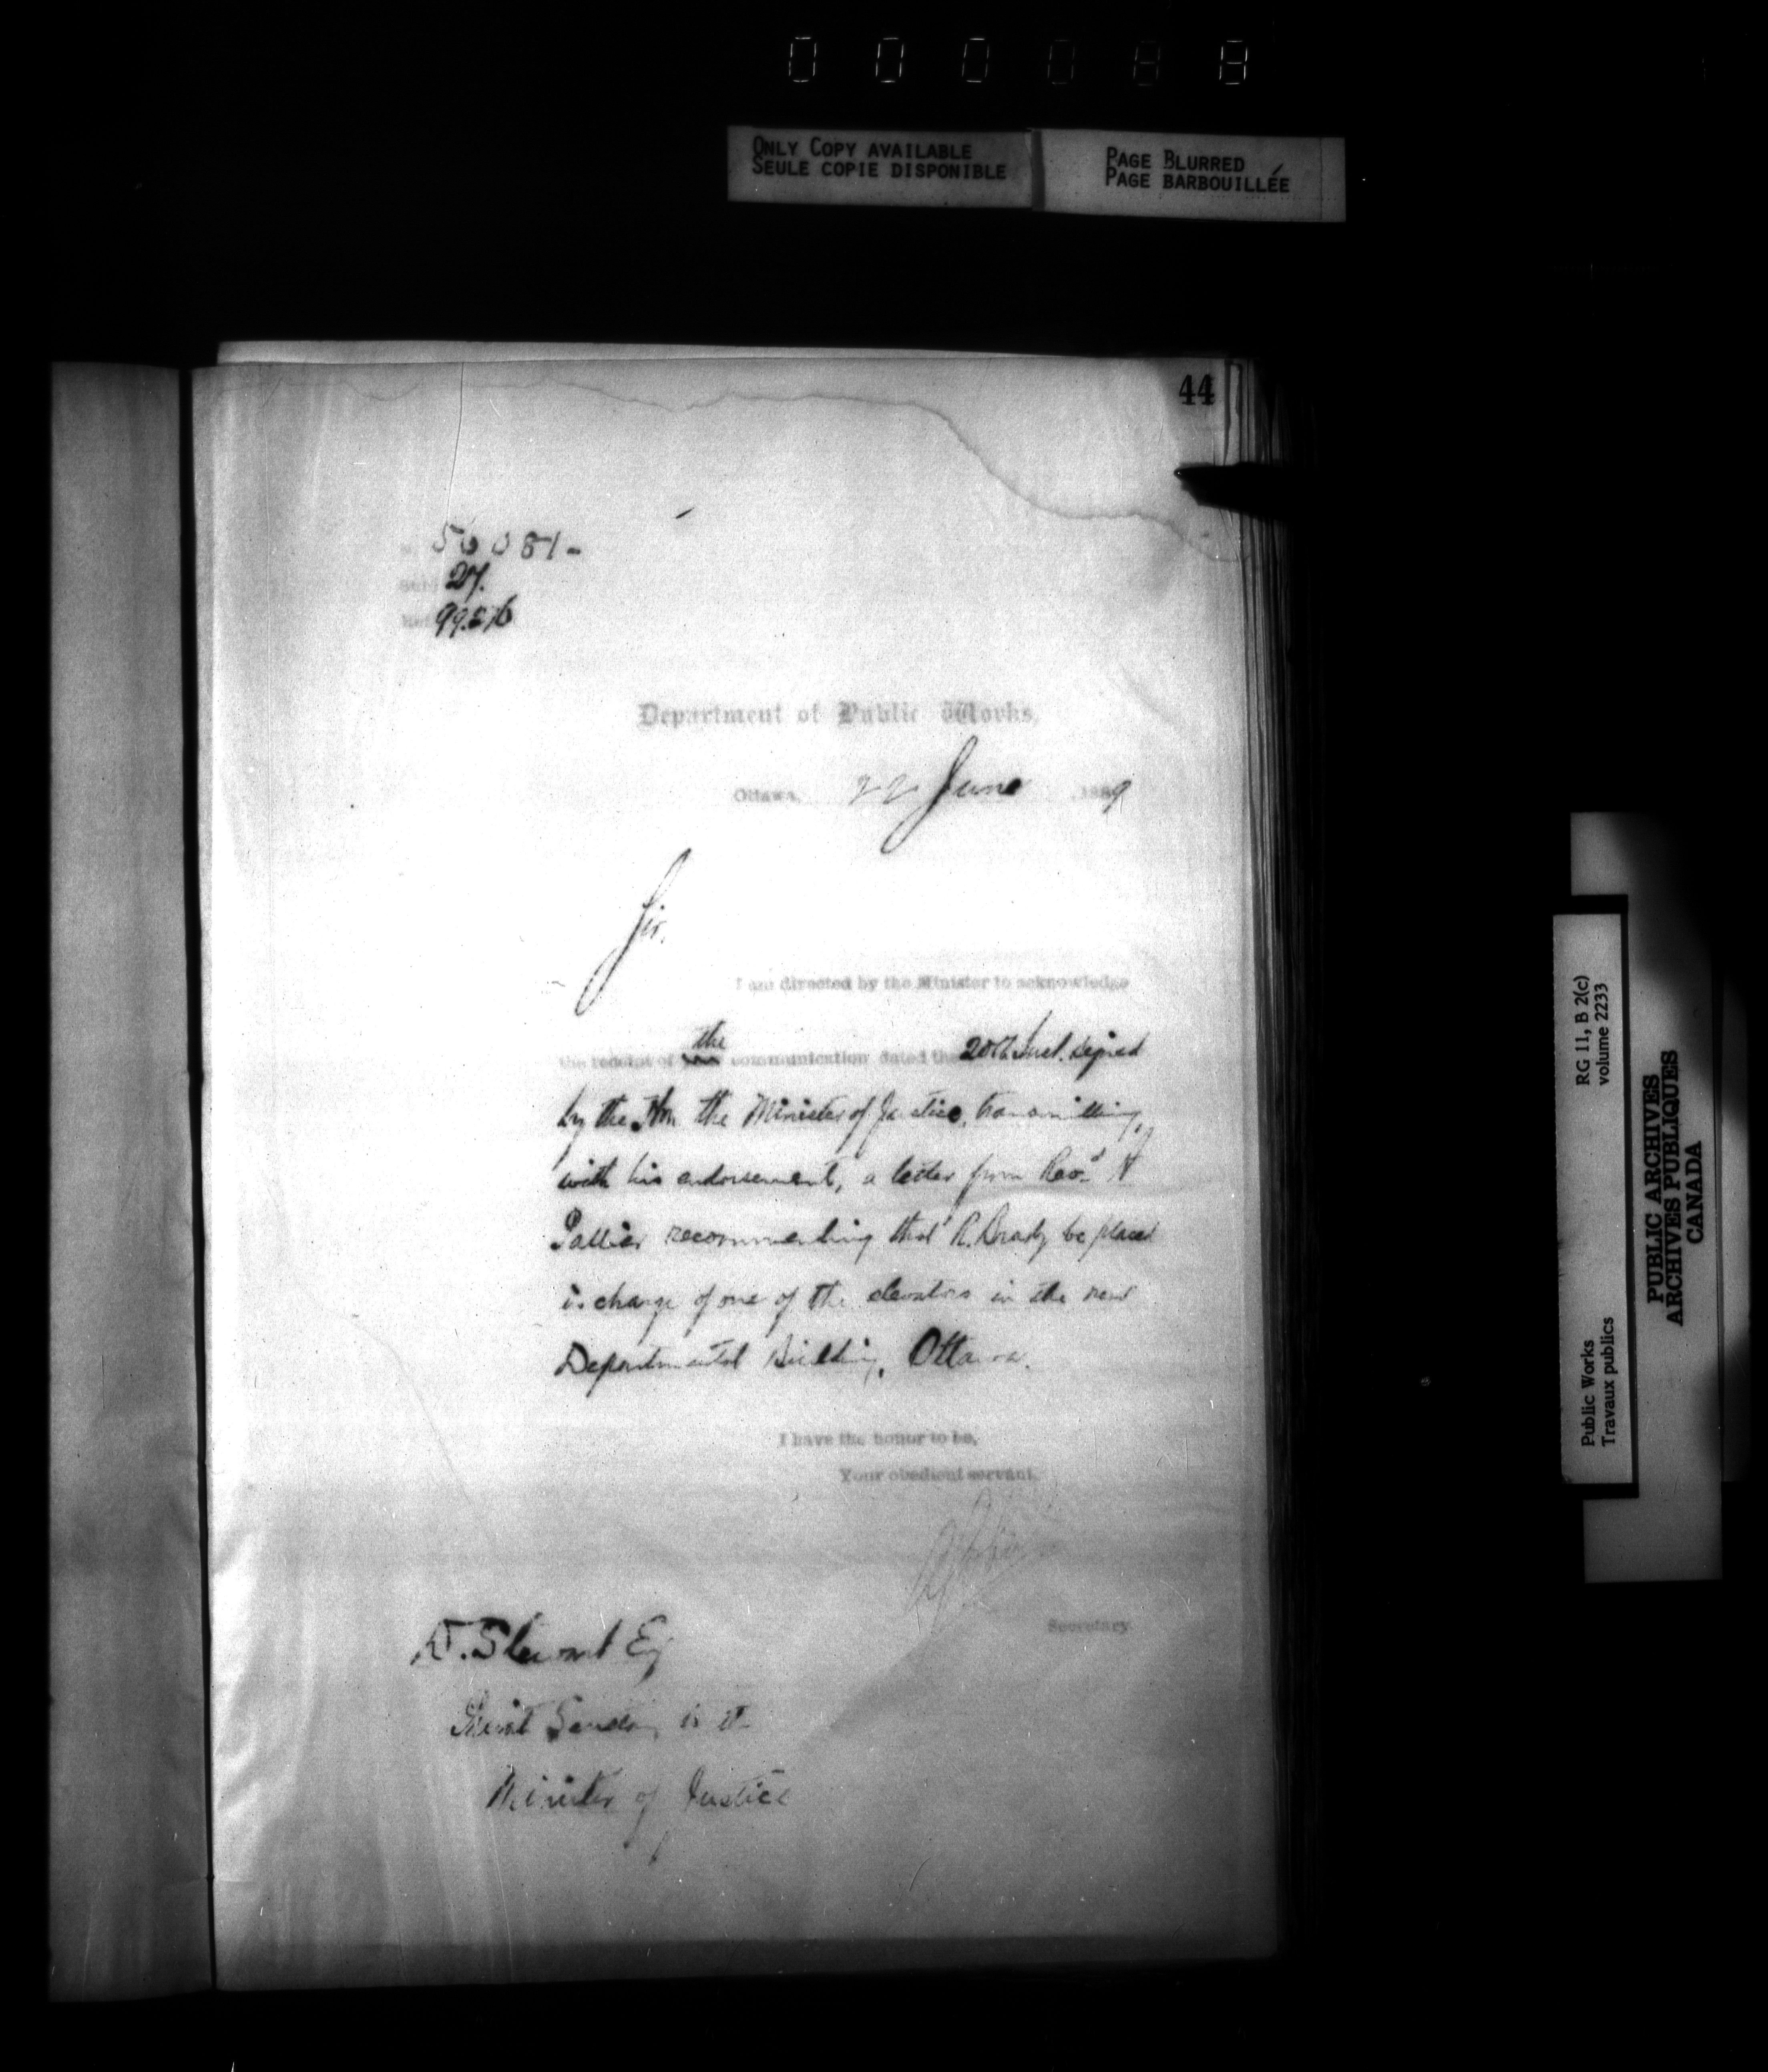 ONLY COPY AVAILABLE
SEULE COPIE DISPONIBLE
PAGE BLURRED
PAGE BARBOUILLÉE
44
56081-
27.
Department of Public Works,
Ottawa, 22 June 1889
Sir,
I am directed by the Minister to acknowledge
the
the receipt of communication dated the 20th Inst. signed
by the Hon. the Minister of Justice, transmitting,
with his endorsement, a letter from Revd A
Pallier recommending that R. Brady be placed
in charge of one of the elevators in the new
Departmental Building, Ottawa.
I have the honor to be,
Your obedient servant,
Secretary
Stewart Esq
Private Secretary to the
Minister of Justice
RG 11, B 2(c)
volume 2233
Public Works
Travaux publics
PUBLIC ARCHIVES
ARCHIVES PUBLIQUES
CANADA